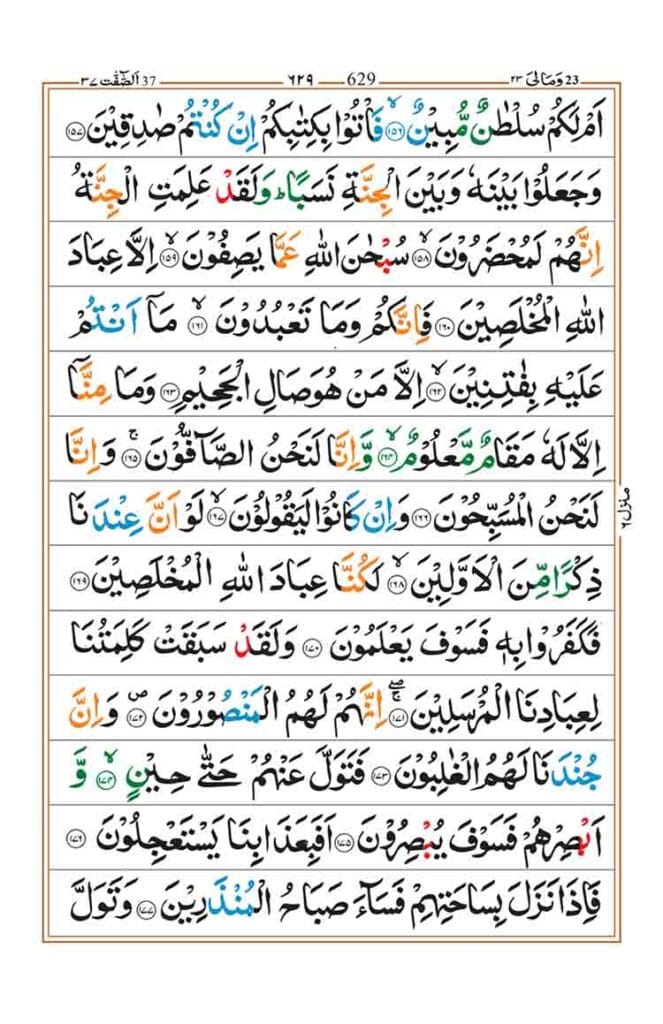 ٢٣ وَمَالِیَ 23 ٦٢٩ 629 اَلصّٰٓفّٰت ٣٧ 37
اَمْ لَكُمْ سُلْطٰنٌ مُّبِيْنٌ ۙ﴿۱۵۶﴾ فَاْتُوْا بِكِتٰبِكُمْ اِنْ كُنْتُمْ صٰدِقِيْنَ ﴿۱۵۷﴾
وَجَعَلُوْا بَيْنَهٗ وَبَيْنَ الْجِنَّةِ نَسَبًا ؕ وَلَقَدْ عَلِمَتِ الْجِنَّةُ
اِنَّهُمْ لَمُحْضَرُوْنَ ۙ﴿۱۵۸﴾ سُبْحٰنَ اللّٰهِ عَمَّا يَصِفُوْنَ ﴿۱۵۹﴾ اِلَّا عِبَادَ
اللّٰهِ الْمُخْلَصِيْنَ ﴿۱۶۰﴾ فَاِنَّكُمْ وَمَا تَعْبُدُوْنَ ۙ﴿۱۶۱﴾ مَاۤ اَنْتُمْ
عَلَيْهِ بِفٰتِنِيْنَ ۙ﴿۱۶۲﴾ اِلَّا مَنْ هُوَ صَالِ الْجَحِيْمِ ﴿۱۶۳﴾ وَمَا مِنَّاۤ
اِلَّا لَهٗ مَقَامٌ مَّعْلُوْمٌ ۙ﴿۱۶۴﴾ وَّاِنَّا لَنَحْنُ الصَّآفُّوْنَ ۚ﴿۱۶۵﴾ وَاِنَّا
لَنَحْنُ الْمُسَبِّحُوْنَ ﴿۱۶۶﴾ وَاِنْ كَانُوْا لَيَقُوْلُوْنَ ۙ﴿۱۶۷﴾ لَوْ اَنَّ عِنْدَنَا
ذِكْرًا مِّنَ الْاَوَّلِيْنَ ۙ﴿۱۶۸﴾ لَكُنَّا عِبَادَ اللّٰهِ الْمُخْلَصِيْنَ ﴿۱۶۹﴾
فَكَفَرُوْا بِهٖ فَسَوْفَ يَعْلَمُوْنَ ﴿۱۷۰﴾ وَلَقَدْ سَبَقَتْ كَلِمَتُنَا
لِعِبَادِنَا الْمُرْسَلِيْنَ ۚۖ﴿۱۷۱﴾ اِنَّهُمْ لَهُمُ الْمَنْصُوْرُوْنَ ۪﴿۱۷۲﴾ وَاِنَّ
جُنْدَنَا لَهُمُ الْغٰلِبُوْنَ ﴿۱۷۳﴾ فَتَوَلَّ عَنْهُمْ حَتّٰى حِيْنٍ ۙ﴿۱۷۴﴾ وَّ
اَبْصِرْهُمْ فَسَوْفَ يُبْصِرُوْنَ ﴿۱۷۵﴾ اَفَبِعَذَابِنَا يَسْتَعْجِلُوْنَ ﴿۱۷۶﴾
فَاِذَا نَزَلَ بِسَاحَتِهِمْ فَسَآءَ صَبَاحُ الْمُنْذَرِيْنَ ﴿۱۷۷﴾ وَتَوَلَّ
منزل ٦